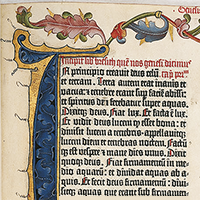 Genesis
Incipit liber bresith quem nos genesi dicimus
In principio creauit deus celu et
terram. Terra autem erat inanis et
vacua: et tenebre erant sup facie abissi:
et spiritus dni ferebatur super aquas.
Dixitq deus. Fiat lux. Et facta e lux.
Et vidit deus lucem q esset bona: et
diuisit lucem a tenebris·appellauitq
lucem diem et tenebras noctem. Factuq
est vespere et mane dies unus. Dixit
quoq deus. Fiat firmamentu in me-
dio aquaru: et diuidat aquas ab a-
quis. Et fecit deus firmamentu: diui-
sitq aquas que erant sub firmamen